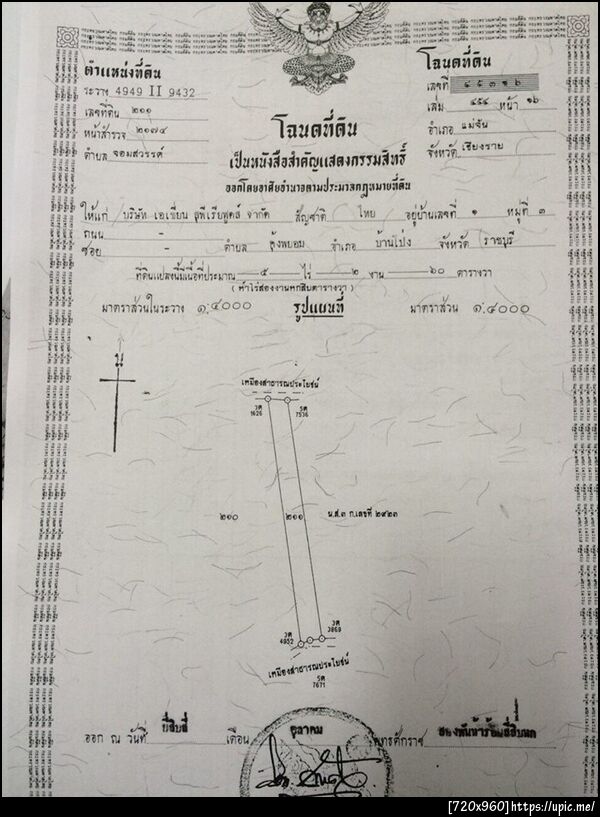 ตำแหน่งที่ดิน
ระวาง 4949 II 9432
เลขที่ดิน ๒๑๑
หน้าสำรวจ ๒๑๗๔
ตำบล จอมสวรรค์
โฉนดที่ดิน
เลขที่ ๔๕๓๑๖
เล่ม ๔๕๔ หน้า ๑๖
อำเภอ แม่จัน
จังหวัด เชียงราย
โฉนดที่ดิน
เป็นหนังสือสำคัญแสดงกรรมสิทธิ์
ออกโดยอาศัยอำนาจตามประมวลกฎหมายที่ดิน
ให้แก่ บริษัท เอเชี่ยน สุพีเรียฟูดส์ จำกัด สัญชาติ ไทย อยู่บ้านเลขที่ ๑ หมู่ที่ ๓
ถนน -
ซอย - ตำบล คุ้งพยอม อำเภอ บ้านโป่ง จังหวัด ราชบุรี
ที่ดินแปลงนี้มีเนื้อที่ประมาณ ๕ ไร่ ๒ งาน ๖๐ ตารางวา
( ห้าไร่สองงานหกสิบตารางวา )
มาตราส่วนในระวาง ๑:๔๐๐๐ รูปแผนที่ มาตราส่วน ๑:๔๐๐๐
น
เหมืองสาธารณประโยชน์
วต
1626
รต
7536
๒๑๐ ๒๑๑ น.ส.๓ ก.เลขที่ ๒๙๒๓
วต
4952
วต
3869
เหมืองสาธารณประโยชน์
รต
7671
ออก ณ วันที่ ยี่สิบสี่ เดือน ตุลาคม พุทธศักราช สองพันห้าร้อยสี่สิบหก
[720x960] https://upic.me/